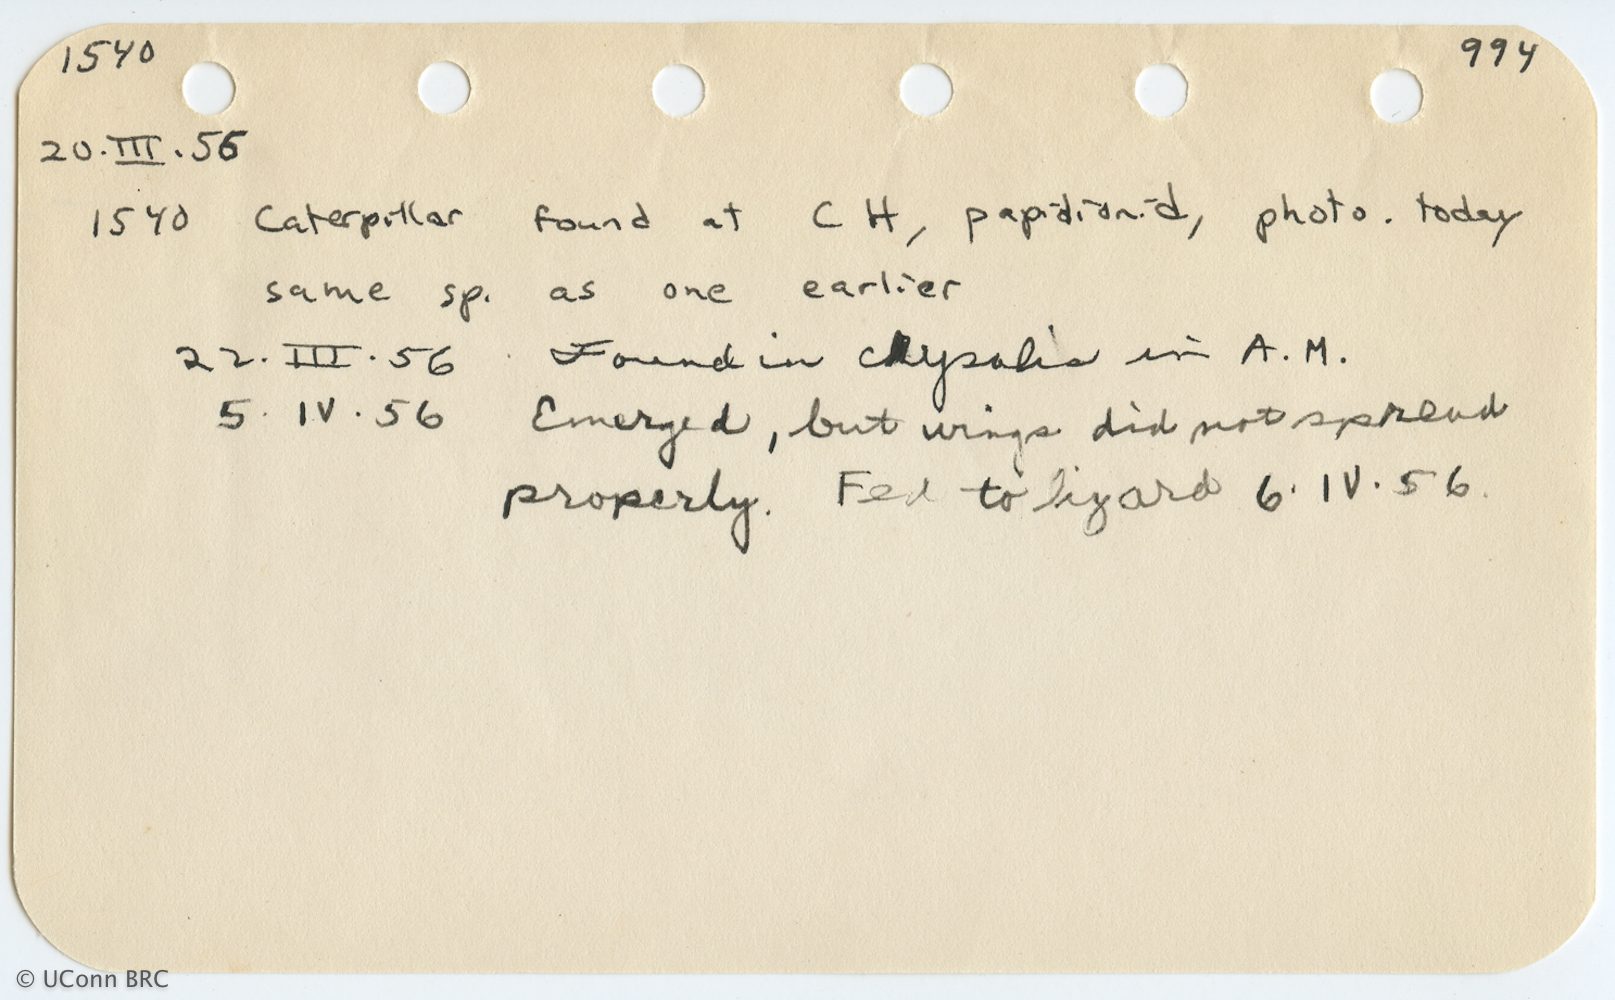 1540 994
20.III.56
1540 Caterpillar found at CH, papidionid, photo. today
same sp. as one earlier
22.III.56 Found in chrysalis in A.M.
5.IV.56 Emerged, but wings did not spread
properly. Fed to lizard 6.IV.56.
© UConn BRC